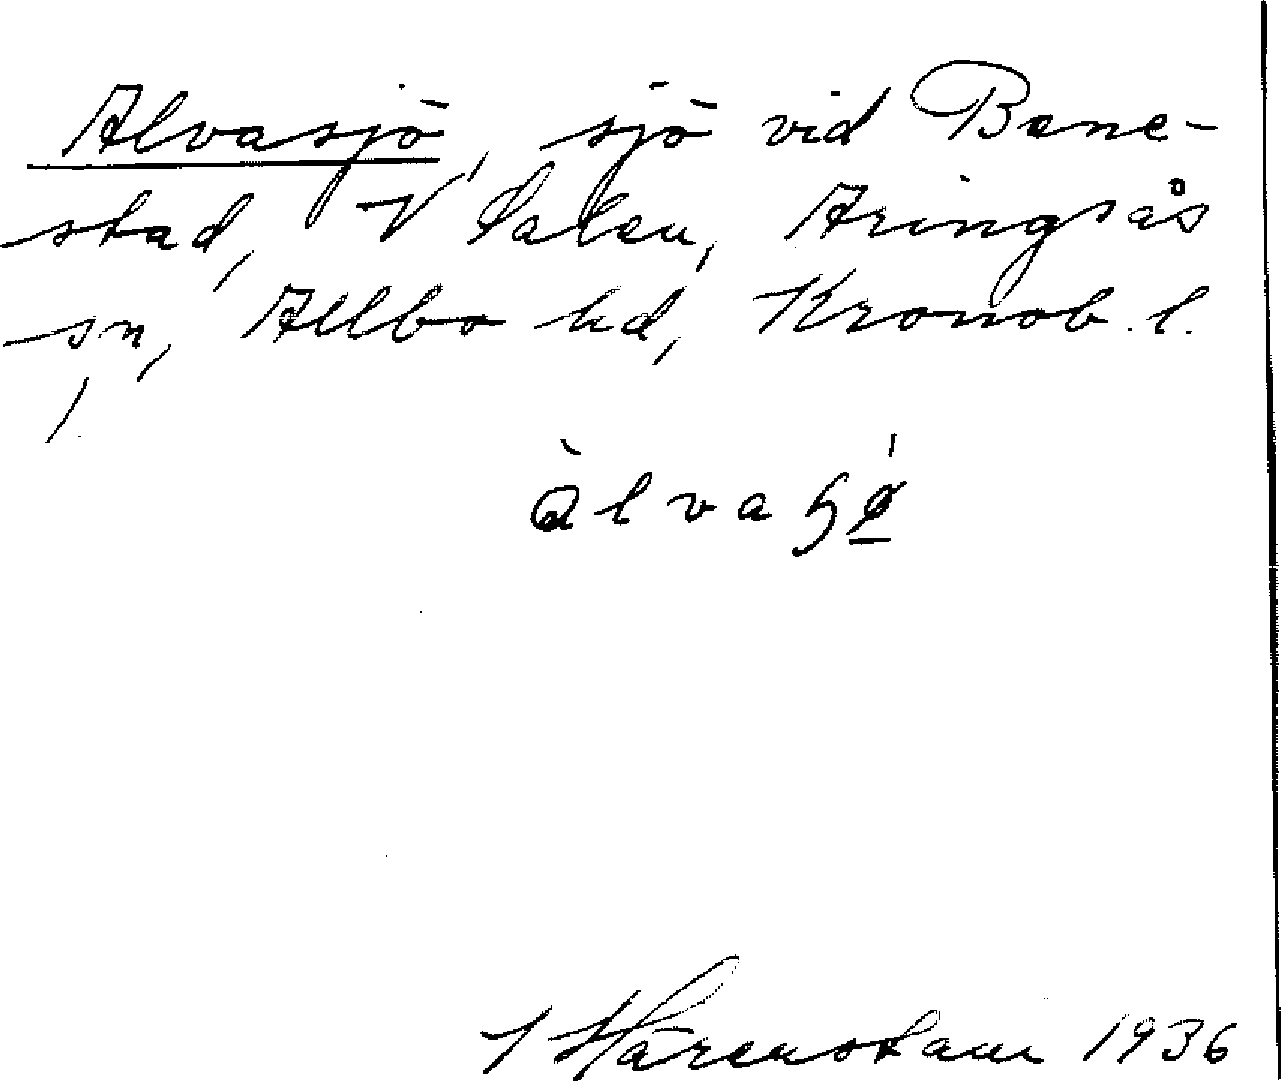 Alvasjö, sjö vid Bene-
stad, V Salen, Aringsås
sn, Allbo hd, Kronob. l.
àlvaɧǿ̲
Härenstam 1936